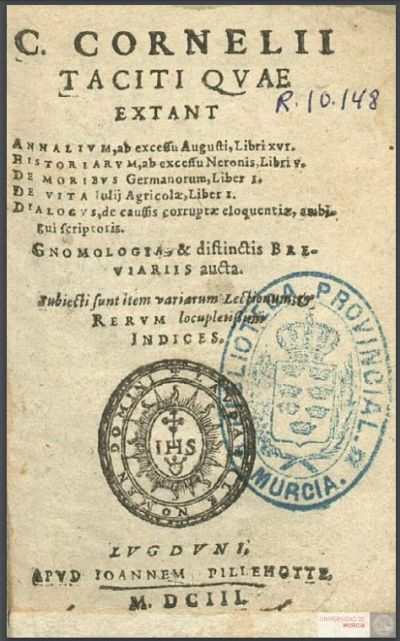 C. CORNELII
TACITI QVAE
EXTANT
R.10.148
ANNALIVM, ab exceſſu Auguſti, Libri xvi.
HISTORIARVM, ab exceſſu Neronis, Libri v.
DE MORIBVS Germanorum, Liber I.
DE VITA Iulij Agricolæ, Liber I.
DIALOGVS, de cauſſis corruptæ eloquentiæ, ambi-
gui ſcriptoris.
GNOMOLOGIA, & diſtinctis BRE-
VIARIIS aucta.
Subiecti ſunt item variarum Lectionum, &
RERVM locupletiſſimi
INDICES.
BIBLIOTECA PROVINCIAL.
MURCIA.
LAVDABILE NOMEN DOMINI
IHS
LVGDVNI,
APVD IOANNEM PILLEHOTTE,
M. DCIII.
UNIVERSIDAD DE
MURCIA